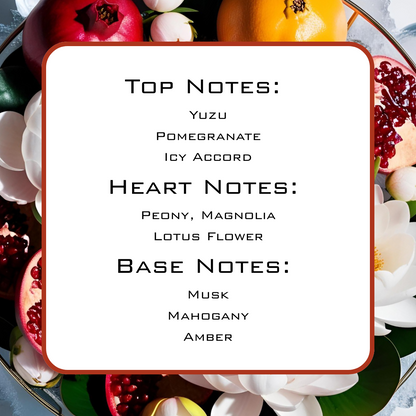 Top Notes:
Yuzu
Pomegranate
Icy Accord
Heart Notes:
Peony, Magnolia
Lotus Flower
Base Notes:
Musk
Mahogany
Amber